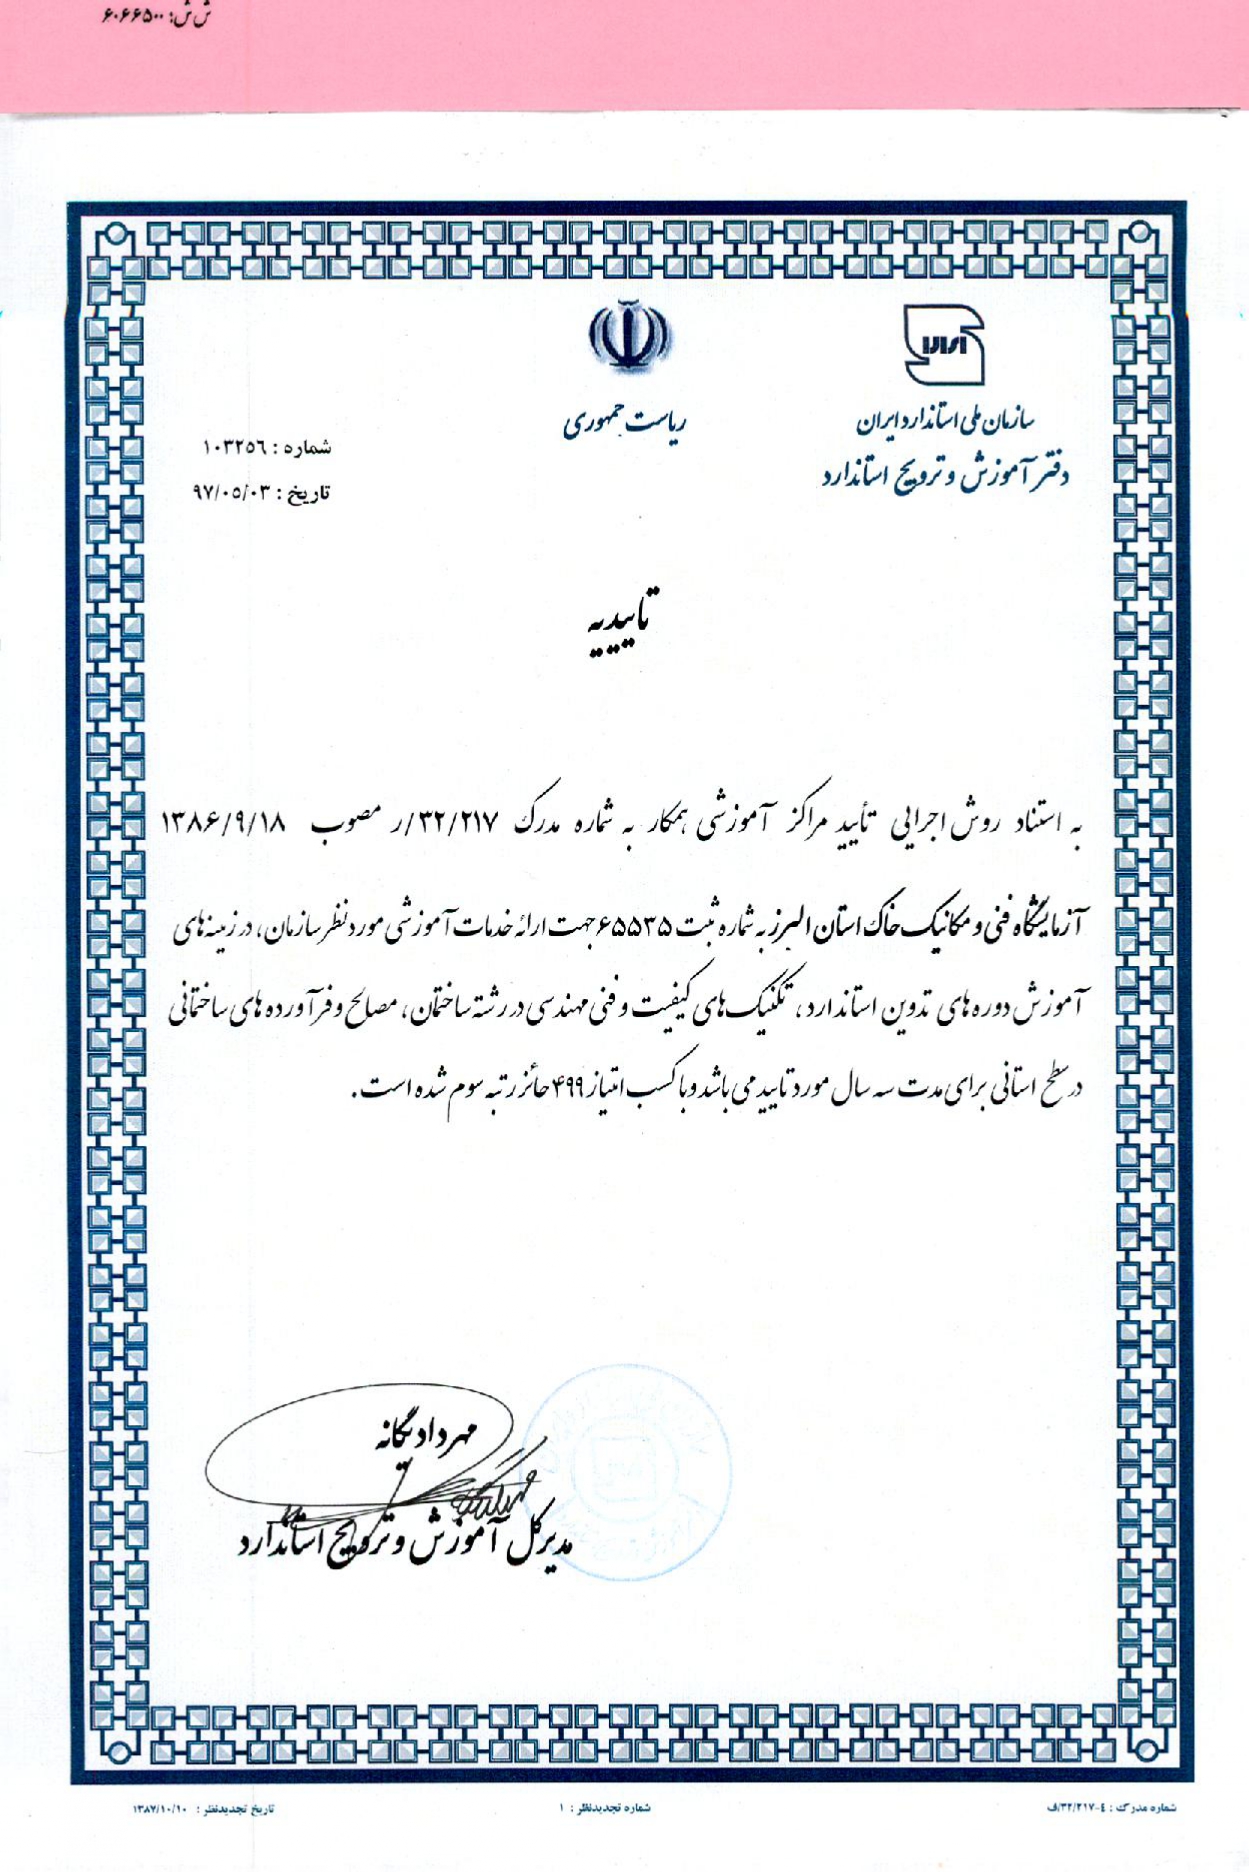 ش ش: ۶۰۶۶۵۰۰
سازمان ملی استاندارد ایران
دفتر آموزش و ترویج استاندارد
ریاست جمهوری
شماره : ۱۰۳۲۵۶
تاریخ : ۹۷/۰۵/۰۳
تاییدیه
به استناد روش اجرایی تأیید مراکز آموزشی همکار به شماره مدرک ۳۲/۲۱۷/ر مصوب ۱۳۸۶/۹/۱۸
آزمایشگاه فنی و مکانیک خاک استان البرز به شماره ثبت ۶۵۵۳۵ جهت ارائه خدمات آموزشی مورد نظر سازمان، در زمینه های
آموزش دوره های تدوین استاندارد، تکنیک های کیفیت و فنی مهندسی در رشته ساختمان، مصالح و فرآورده های ساختمانی
در سطح استانی برای مدت سه سال مورد تایید می باشد و با کسب امتیاز ۴۹۹ حائز رتبه سوم شده است.
مهرداد یگانه
مدیرکل آموزش و ترویج استاندارد
شماره مدرک : ۴-۳۲/۲۱۷/ف
شماره تجدیدنظر : ۱
تاریخ تجدیدنظر : ۱۳۸۷/۱۰/۱۰